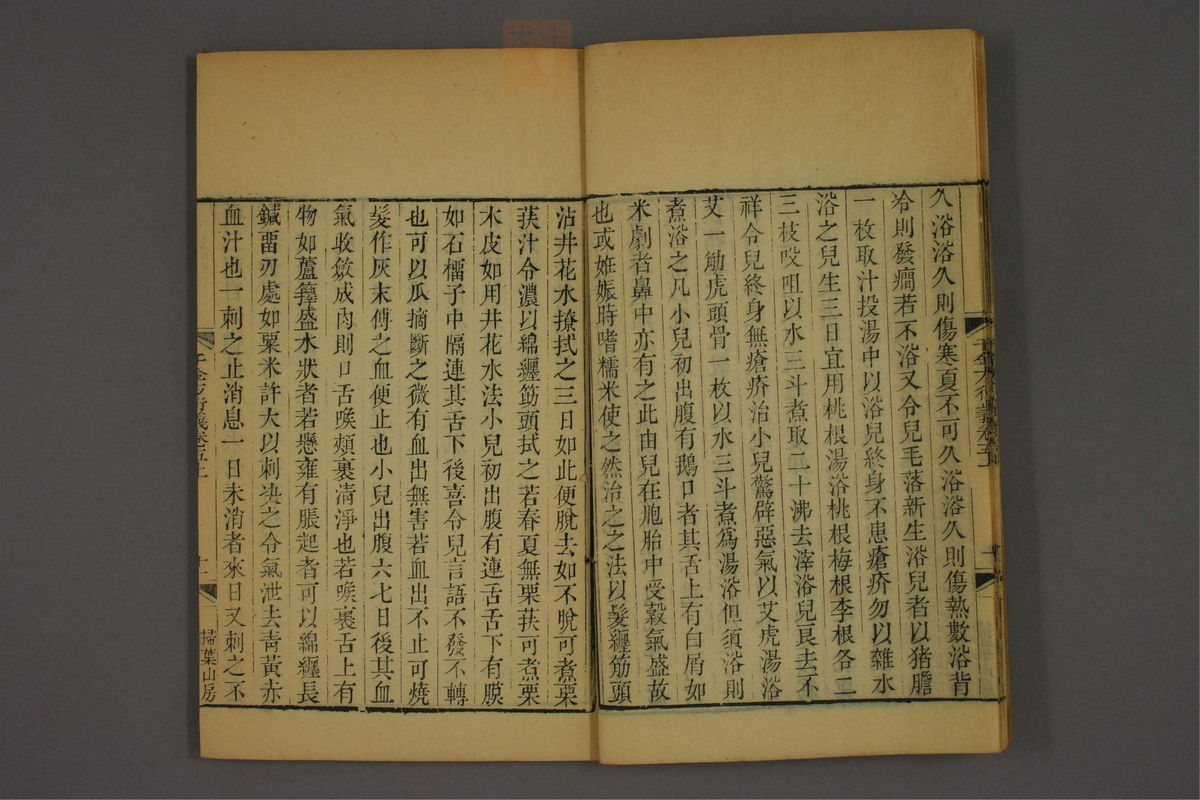 久浴浴久則傷寒夏不可久浴浴久則傷熱數浴背
冷則發癎若不浴又令兒毛落新生浴兒者以猪膽
一枚取汁投湯中以浴兒終身不患瘡疥勿以雜水
浴之兒生三日宜用桃根湯浴桃根梅根李根各二
三枝㕮咀以水三斗煮取二十沸去滓浴兒良去不
祥令兒終身無瘡疥治小兒驚辟惡氣以艾虎湯浴
艾一觔虎頭骨一枚以水三斗煮爲湯浴但須浴則
煮浴之凡小兒初出腹有鵝口者其舌上有白屑如
米劇者鼻中亦有之此由兒在胞胎中受穀氣盛故
也或姙娠時嗜糯米使之然治之之法以髮纏筋頭
沾井花水撩拭之三日如此便脫去如不脫可煮栗
莢汁令濃以綿纏筋頭拭之若春夏無栗莢可煮栗
木皮如用井花水法小兒初出腹有連舌舌下有膜
如石榴子中隔連其舌下後喜令兒言語不發不轉
也可以瓜摘斷之微有血出無害若血出不止可燒
髮作灰末傅之血便止也小兒出腹六七日後其血
氣收斂成肉則口舌喉頰裏清淨也若喉裏舌上有
物如蘆籜盛水狀者若懸雍有脹起者可以綿纏長
鍼畱刃處如粟米許大以刺決之令氣泄去靑黃赤
血汁也一刺之止消息一日未消者來日又刺之不
千金方衍義卷五上
掃葉山房